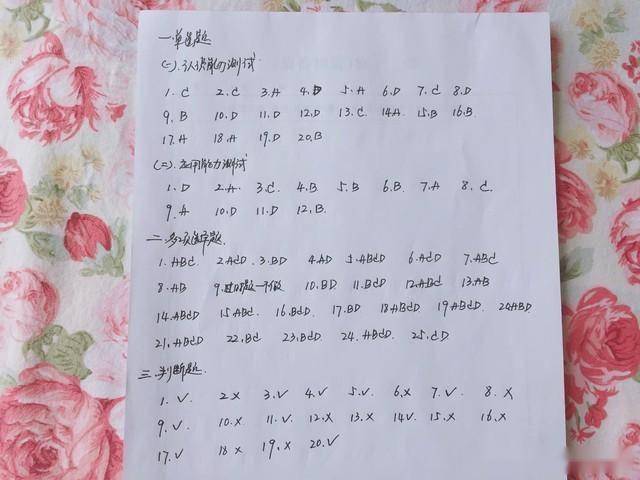 一.单选题
(一).认识能力测试
1. C 2. C 3. A 4. D 5. A 6. D 7. C 8. D
9. B 10. D 11. D 12. D 13. C 14. A 15. B 16. B
17. A 18. A 19. D 20. B
(二).应用能力测试
1. D 2. A 3. C 4. B 5. B 6. B 7. A 8. C
9. A 10. D 11. D 12. B
二.多项选择题
1. ABC 2. ACD 3. BD 4. AD 5. ABCD 6. ACD 7. ABC
8. AB 10. BD 11. BCD 12. ABC 13. AB
14. ABCD 15. ABC 16. BCD 17. BD 18. ABCD 19. ABCD 20. ABD
21. ABCD 22. BC 23. BCD 24. ABCD 25. CD
三.判断题.
1. √ 2. X 3. √ 4. √ 5. √ 6. X 7. √ 8. X
9. √ 10. X 11. √ 12. X 13. X 14. √ 15. X 16. X
17. √ 18. X 19. X 20. √